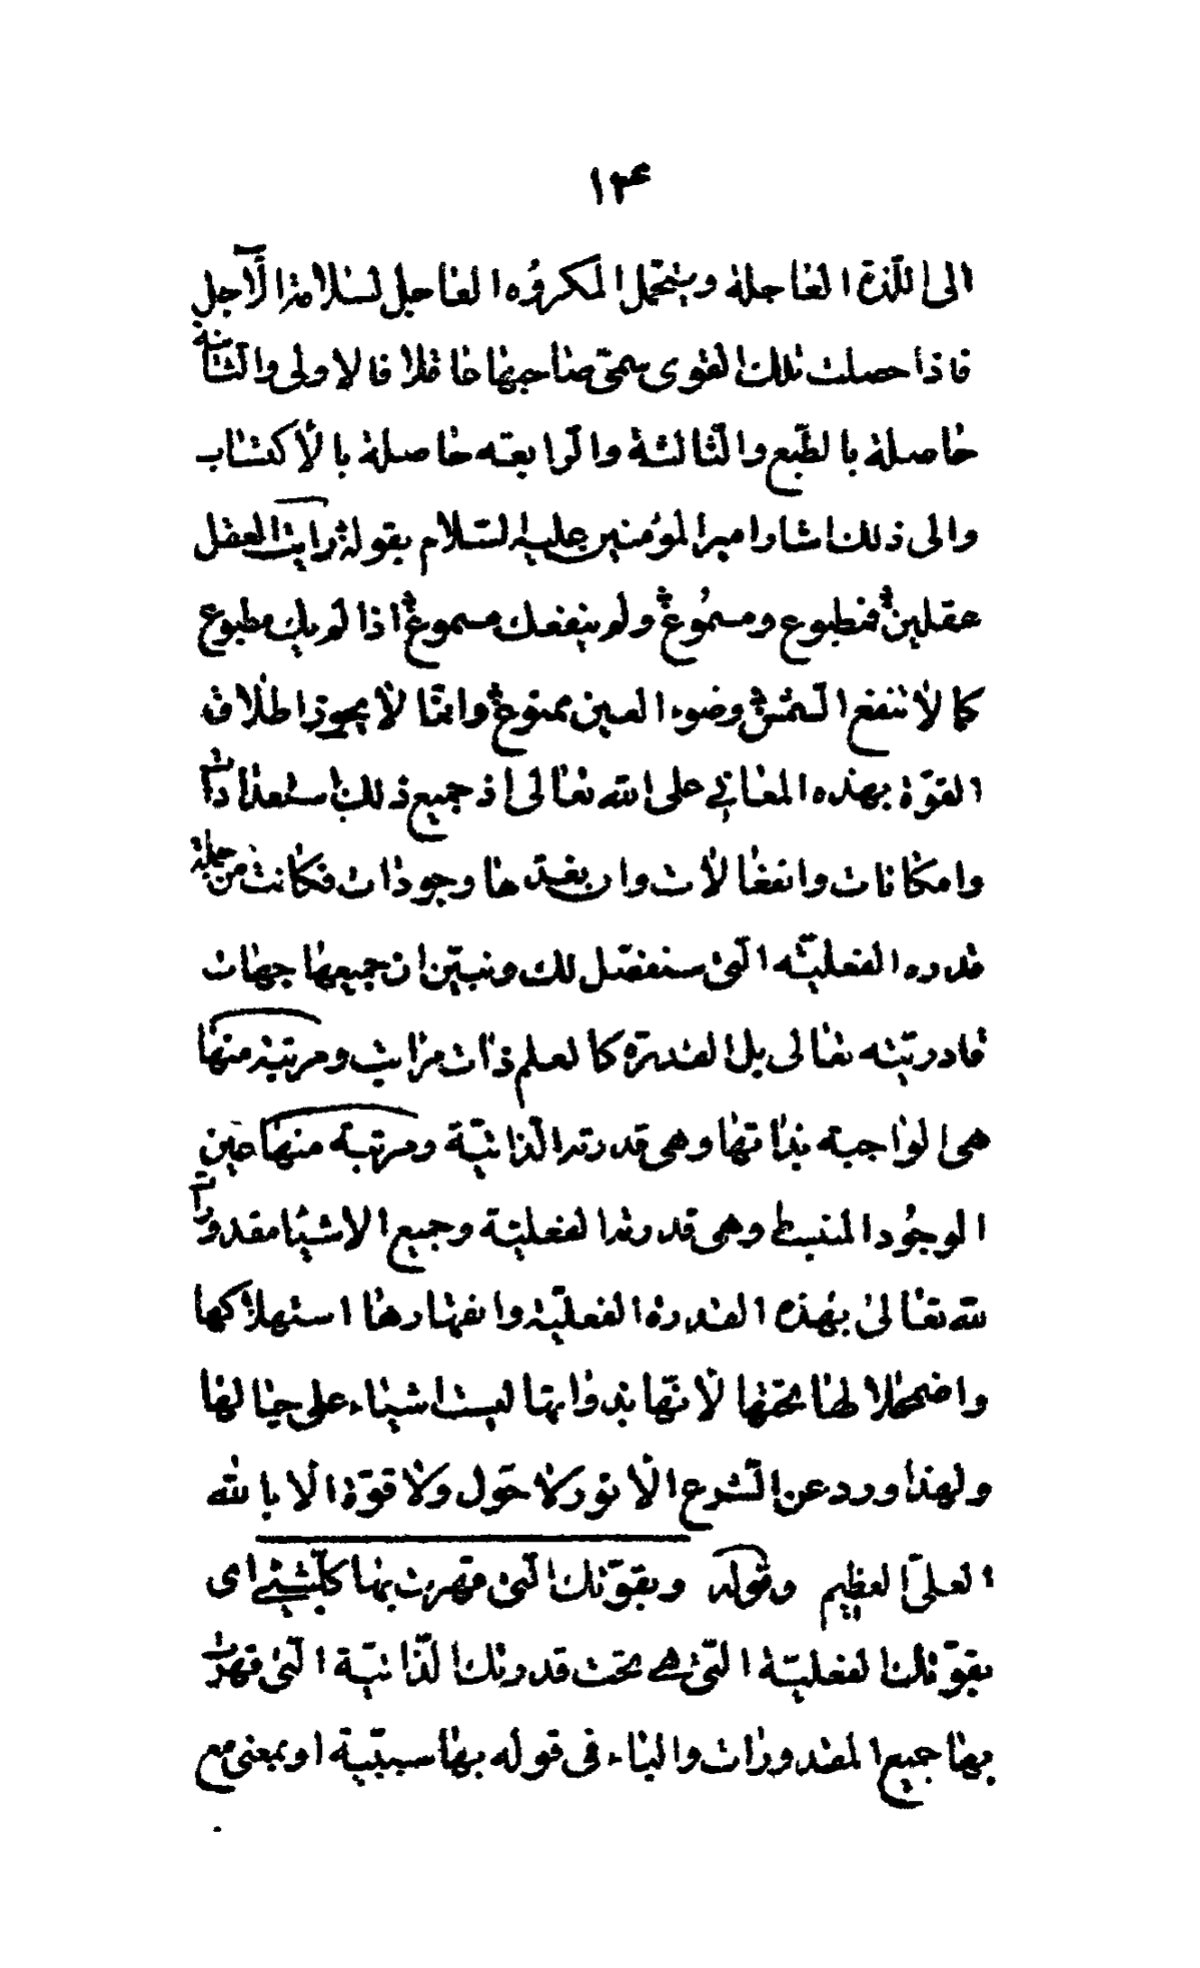 ۱۳۴
الى اللذة العاجلة ويتحمل المكروه العاجل لسلامة الآجل
فاذا حصلت تلك القوى سمى صاحبها عاقلا فالاولى والثانية
حاصلة بالطبع والثالثة والرابعه حاصلة بالأكتساب
والى ذلك اشار امير المؤمنين عليه السلام بقوله رايت العقل
عقلين فمطبوع ومسموع ولم ينفعك مسموع اذا لم يك مطبوع
كما لا تنفع الشمس وضوء العين ممنوع وانما لا يجوز اطلاق
القوة بهذه المعاني على الله تعالى اذ جميع ذلك استعدادات
وامكانات وانفعالات وان بعد ها وجودات فكانت من جملة
قدره الفعليه التى سنفصل لك ونبين ان جميعها جهات
قادريته تعالى بل القدرة كالعلم ذات مراتب ومرتبة منها
هى الواجبه بذاتها وهى قدرته الذاتية ومرتبة منها عين
الوجود المنبسط وهى قدرته الفعلية وجميع الاشيا مقدورات
لله تعالى بهذه القدرة الفعلية وانقهارها استهلاكها
واضمحلالها تحتها لأنها بذواتها ليست اشياء على حيالها
ولهذا ورد عن الشرع الانور لا حول ولا قوة الا بالله
العلى العظيم وقوله وبقوتك التى قهرت بها كلشئ اى
بقوتك الفعلية التى هي تحت قدرتك الذاتية التى قهرت
بها جميع المقدورات والباء فى قوله بها سببية او بمعنى مع